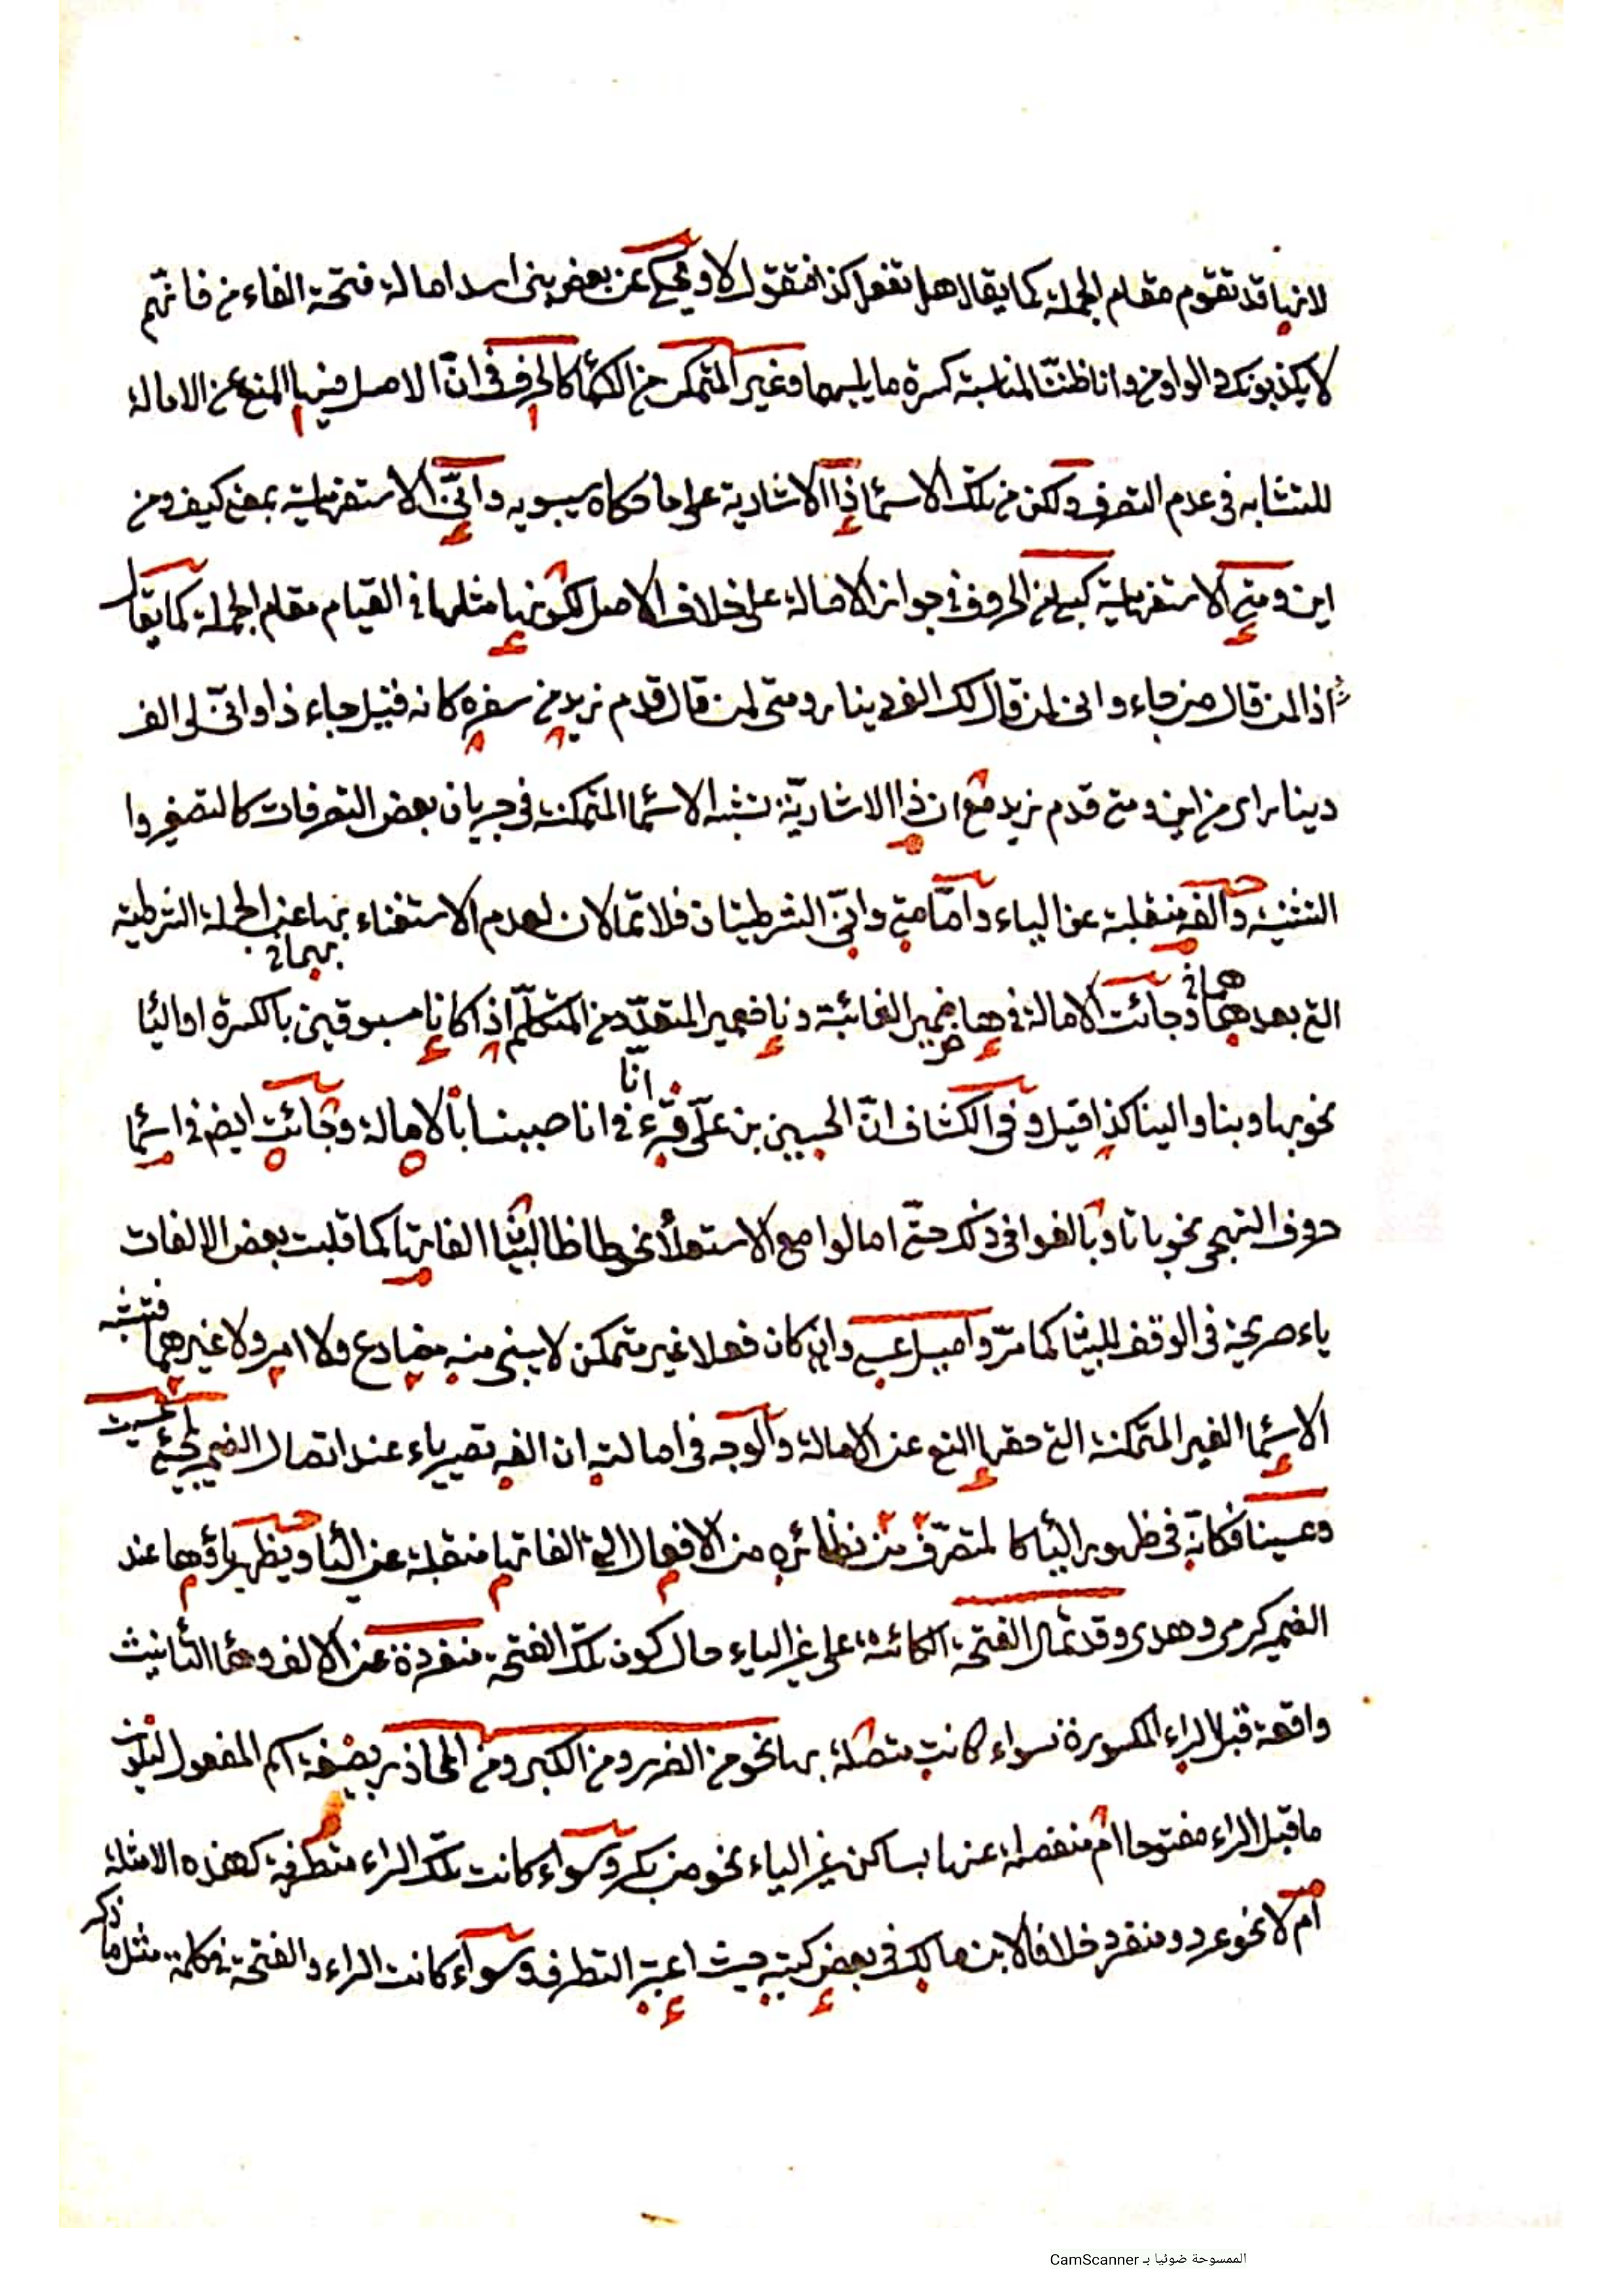 لانها قد تقوم مقام الجملة كما يقال هل تفعل كذا فتقول لا وحكى عن بعض بنى اسد امالة فتحة الفاء من فانهم
لا يكذبونك والواو من وانا ظننّا لمناسبة كسرة ما يليهما وغير المتمكن من الاسما كالحرف فى انّ الاصل فيها المنع عن الامالة
للتشابه فى عدم التصرف ولكن من تلك الاسما ذا الاشارية على ما حكاه سيبويه وانّى الاستفهامية بمعنى كيف ومن
اين ومتى الاستفهامية كبلى من الحروف فى جواز الامالة على خلاف الاصل لكونها مثلها فى القيام مقام الجملة كما يقال
ذا لمن قال من جاء وانى لمن قال لك الف دينار ومتى لمن قال قدم زيد من سفره كانه قيل جاء ذا وانّى لى الف
دينار اى من اين ومتى قدم زيد مع ان ذا الاشاريّة تشبه الاسما المتمكنة فى جريان بعض التصرفات كالتصغير وا
التثنية والفه منقلبة عن الياء وامّا متى وانّى الشرطيتان فلا تمالان لعدم الاستغناء بهما عن الجملة الشرطية
التى بعدهما وجائت الامالة فى ها ضمير الغائبة و نا ضمير المتعدّد من المتكلّم اذا كانا مسبوقين بالكسرة او اليا
نحو بها وبنا والينا كذا قيل وفى الكشاف انّ الحسين بن علىّ قرء فى انا صببنا بالامالة وجائت ايضا فى اسما
حروف التهجى نحو با تا وبالغوا فى ذلك حتّى امالوا مع الاستعلا نحو طا ظا الفاتها كما قلبت بعض الالفات
ياء صريحة فى الوقف كما مرّ واميل عسى وان كان فعلا غير متمكن لا يبنى منه مضارع ولا امر ولا غيرهما فتشبه
الاسما الغير المتمكنة التى حقها المنع عن الامالة والوجه فى امالته ان الفه تصير ياء عند اتصال الضمير نحو عسيت
وعسينا فكانه فى ظهور اليا كالمتصرّف من نظائره من الافعال التى الفاتها منقلبة عن اليا ويظهر ياؤها عند
الضمير كرمى وهدى وقد تمال الفتحة الكائنة على غير الياء حال كون تلك الفتحة منفردة عن الالف وها التانيث
واقعة قبل الراء المكسورة سواء كانت متصلة بها نحو من الضرر ومن الكبر ومن المحاذر بصيغة اسم المفعول ليكون
ما قبل الراء مفتوحا ام منفصلة عنها بساكن غير الياء نحو من بكر وسواء كانت تلك الراء متطرفة كهذه الامثلة
ام لا نحو عرد ومنقرد خلافا لابن مالك فى بعض كتبه حيث اعتبر التطرف وسواء كانت الراء والفتحة فى كلمة مثل ما ذكر
الممسوحة ضوئيا بـ CamScanner